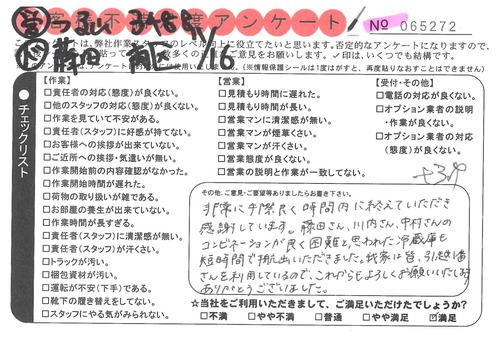 不 業アンケート
No 065272
藤田 11/16
ケートは、弊社作業スタッフのレベル向上に役立てたいと思います。否定的なアンケートになりますので、
ご意見をお願いします。✓印は、いくつでも結構です。
(※情報保護シールは1度はがすと、再度貼りなおすことはできません)
チェックリスト
【作業】
□責任者の対応(態度)が良くない。
□他のスタッフの対応(態度)が良くない。
□作業を見ていて不安がある。
□責任者(スタッフ)に好感が持てない。
□お客様への挨拶が出来ていない。
□ご近所への挨拶・気遣いが無い。
□作業開始前の内容確認がなかった。
□作業開始時間が遅れた。
□荷物の取り扱いが雑である。
□お部屋の養生が出来ていない。
□作業時間が長すぎる。
□責任者(スタッフ)に清潔感が無い。
□責任者(スタッフ)が汗くさい。
□トラックが汚い。
□梱包資材が汚い。
□運転が不安(下手)である。
□靴下の履き替えをしてない。
□スタッフにやる気がみられない。
【営業】
□見積もり時間に遅れた。
□見積もり時間が長い。
□営業マンに清潔感が無い。
□営業マンが煙草くさい。
□営業マンが汗くさい。
□営業態度が良くない。
□営業の説明と作業が一致してない。
【受付・その他】
□電話の対応が良くない。
□オプション業者の説明
・作業が良くない。
□オプション業者の対応
(態度)が良くない。
その他、ご意見・ご要望等ありましたらお書き下さい。
非常に手際良く時間内に終えていただき
感謝しています。藤田さん、川内さん、中村さんの
コンビネーションが良く困難と思われた冷蔵庫も
短時間で搬出いただきました。我家は皆、引越は
さんを利用しているので、これからもよろしくお願いいたします
ありがとうございました。
☆当社をご利用いただきまして、ご満足いただけたでしょうか?
□不満 □やや不満 □普通 □やや満足 ☑満足